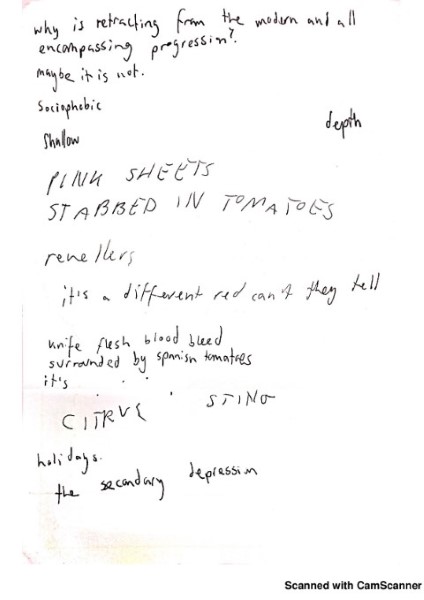 why is retracting from the modern and all
encompassing progression?
maybe it is not.
Sociophobic
depth
Shallow
PINK SHEETS
STABBED IN TOMATOES
revellers
it's a different red can't they tell
knife flesh blood bleed
surrounded by spanish tomatoes
it's
CITRUS STING
holidays.
the secondary depression
Scanned with CamScanner